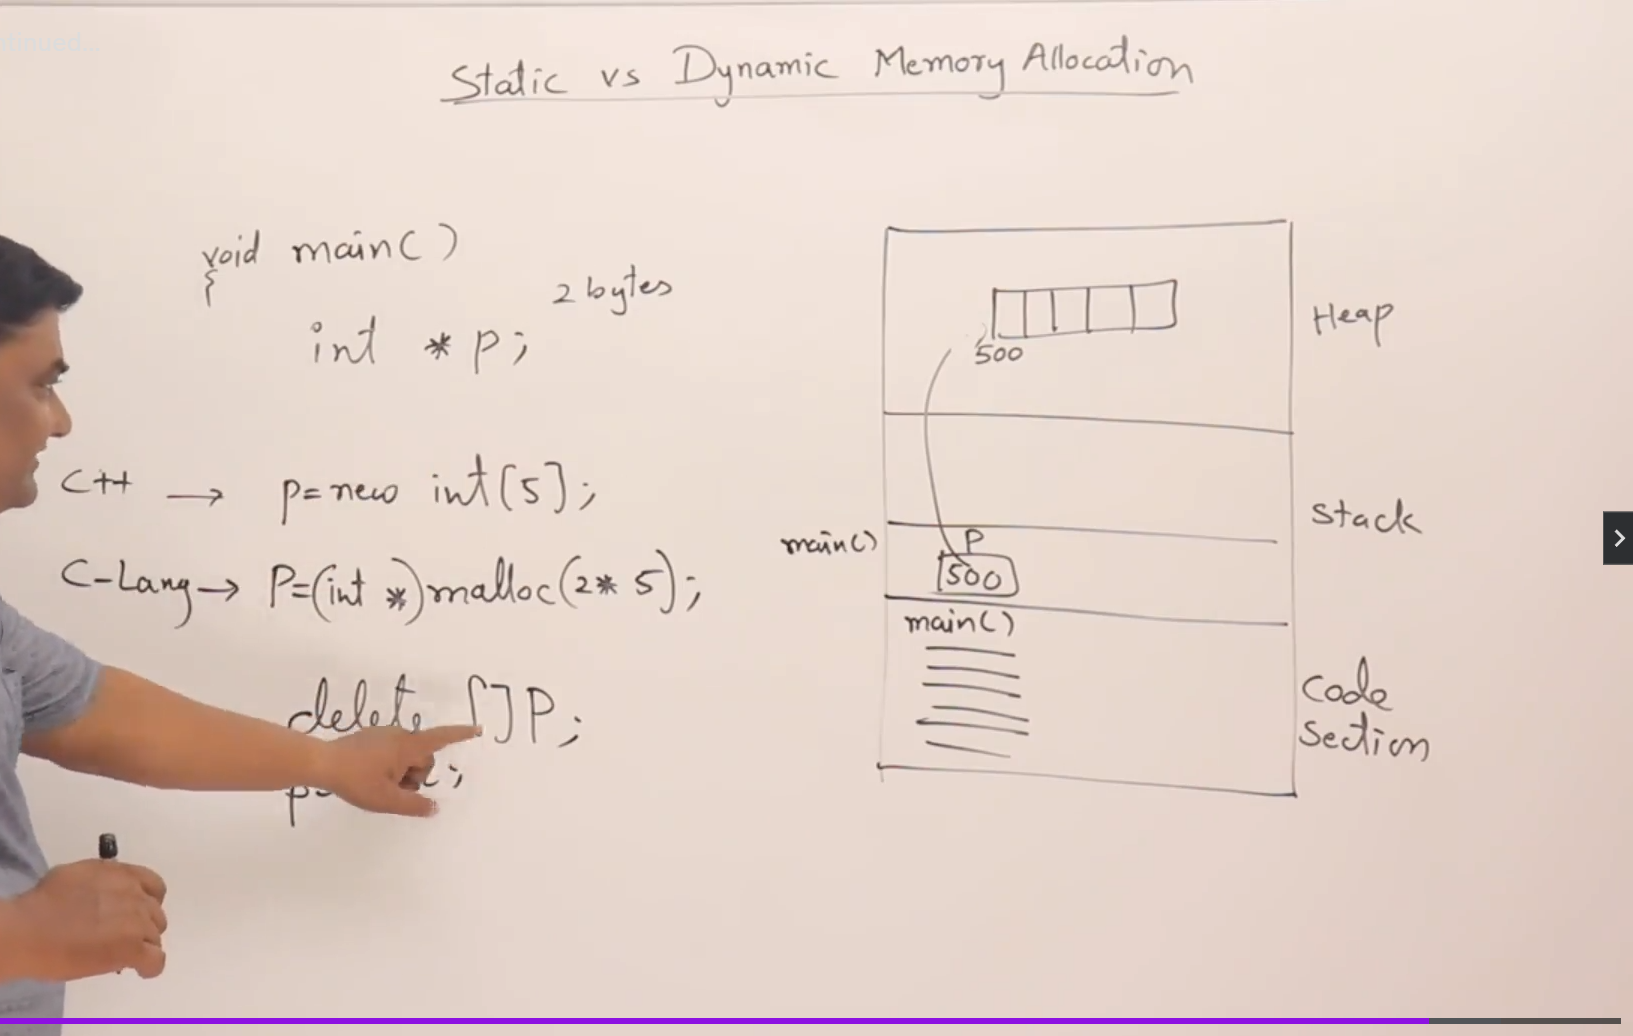 Static vs Dynamic Memory Allocation
void main()
{
2 bytes
int * p;
C++ → p=new int[5];
C-Lang→ P=(int *)malloc(2* 5);
delete []P;
Heap
500
Stack
main()
P
500
main()
Code
Section